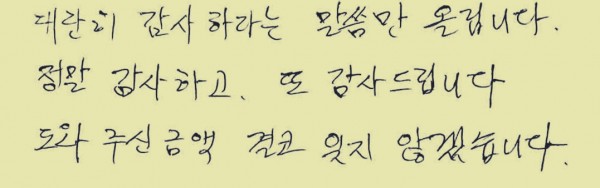 대란히 감사하라는 말씀만 올립니다.
정말 감사하고, 또 감사드립니다
도와 주신 금액 결코 잊지 않겠습니다.